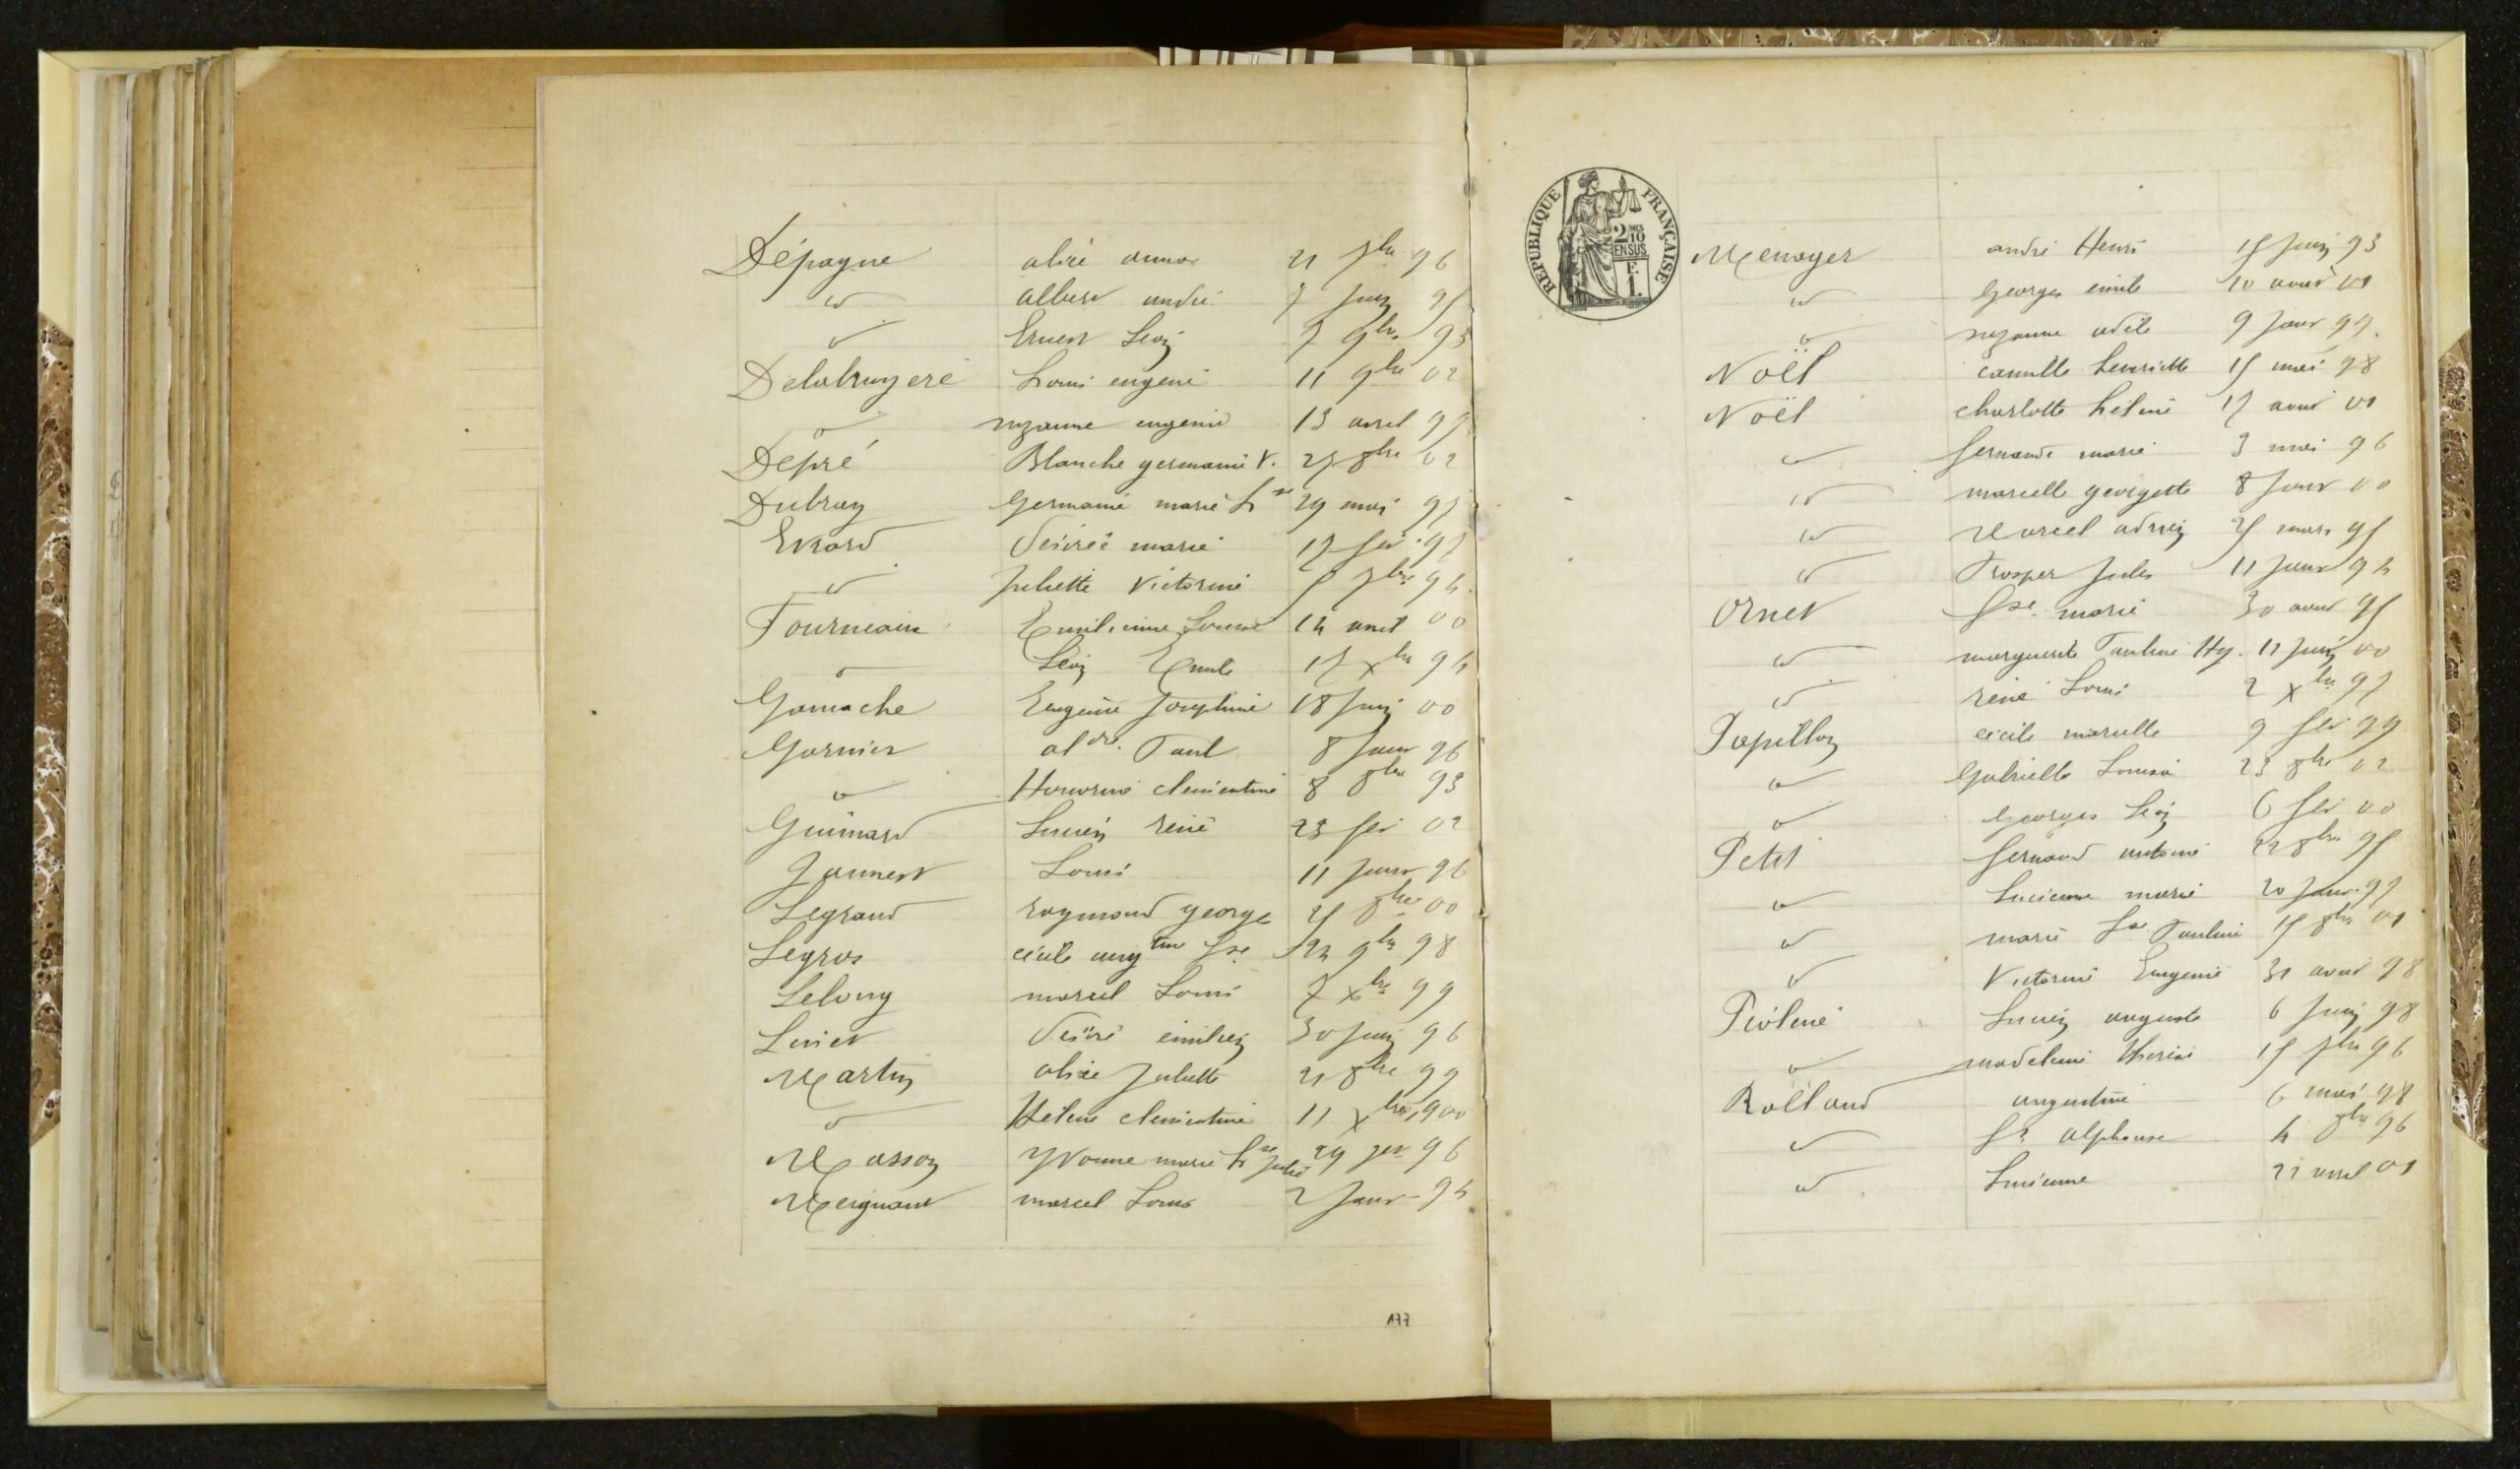 Dépagne alice anna 21 7bre 96
id albert andré 7 juin 95
id Ernest Léon 7 9bre 93
Delabruyere Louis eugene 11 9bre 02
id suzanne eugenie 13 avril 99
Depré Blanche germaine V. 27 8bre 02
Dubray germaine marie Lse 29 mai 97
Evrard Désirée marie 17 fev. 97
id Juliette Victorine 5 7bre 94
Fourneaux Emilienne Louise 14 aout 00
id Léon Emile 17 Xbre 94
Gamache Eugénie Joséphine 18 Juin 00
Garnier aldre Paul 8 Janv 96
id Honorine clementine 8 8bre 93
Guimard Lucien rené 23 fev 02
Jannest Louis 11 Janv 96
Legrand raymond george 25 8bre 00
Legros cécile augtine Lse 24 9bre 98
Lelong marcel Louis 7 Xbre 99
Liniet Désiré emilien 30 Juin 96
Martin alice Juliette 21 8bre 99
id Helene clementine 11 Xbre 1900
Masson Yvonne marie Lse Julie 29 jer 96
Meignant marcel Louis 2 Janv 94
177
REPUBLIQUE FRANÇAISE
2/10 EN SUS
F. 1.
Menoyer andré Henri 15 Juin 93
id Georges emile 10 aout 01
id suzanne adele 9 janv 99
Noël camille henriette 15 mai 98
Noël charlotte hélène 17 aout 01
id fernande marie 3 mai 96
id marcelle georgette 8 Janv 00
id Marcel adrien 25 mars 95
id Prosper Jules 11 Janv 94
Ornet Lse marie 30 aout 95
id marguerite Pauline Hy. 11 Juin 00
id rené Louis 2 Xbre 97
Papillon cécile marcelle 9 fev 99
id Gabrielle Louisa 23 8bre 02
id Georges Léon 6 fev 00
Petit fernand antoine 22 8bre 95
id Lucienne marie 20 Janv. 97
id marie Lse Pauline 15 8bre 01
id Victorine Eugenie 31 aout 98
Piolene Lucien auguste 6 Juin 98
id madeleine therese 15 7bre 96
Rolland augustine 6 mai 98
id Ls alphonse 4 8bre 96
id Lucienne 22 avril 01